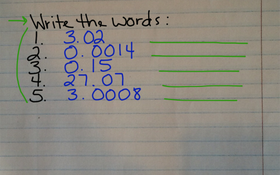 → Write the words:
1. 3.02
2. 0.0014
3. 0.15
4. 27.07
5. 3.0008